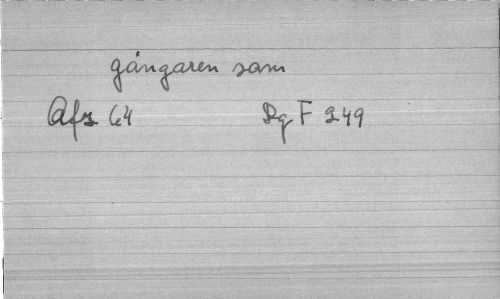 gångaren sam
Afz 64 Rq F 249